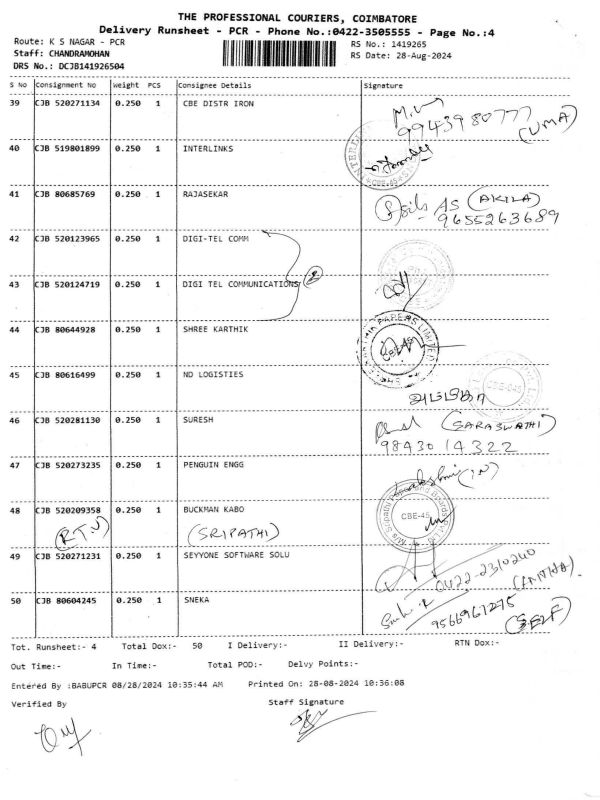 THE PROFESSIONAL COURIERS, COIMBATORE
Delivery Runsheet - PCR - Phone No.:0422-3505555 - Page No.:4
Route: K S NAGAR - PCR RS No.: 1419265
Staff: CHANDRAMOHAN RS Date: 28-Aug-2024
DRS No.: DCJB141926504
S No Consignment No Weight PCS Consignee Details Signature
39 CJB 520271134 0.250 1 CBE DISTR IRON
9943980777
(UMA)
40 CJB 519801899 0.250 1 INTERLINKS
CBE-45
41 CJB 80685769 0.250 1 RAJASEKAR (AKILA)
9655263689
42 CJB 520123965 0.250 1 DIGI-TEL COMM
43 CJB 520124719 0.250 1 DIGI TEL COMMUNICATIONS 2
44 CJB 80644928 0.250 1 SHREE KARTHIK
PAPERS LIMITED
45 CJB 80616499 0.250 1 ND LOGISTIES
CBE-045
46 CJB 520281130 0.250 1 SURESH (SARASWATHI)
98430 14322
47 CJB 520273235 0.250 1 PENGUIN ENGG Lakshmi (IN)
48 CJB 520209358 0.250 1 BUCKMAN KABO
(R.T.S) (SRIPATHI)
CBE-45
49 CJB 520271231 0.250 1 SEYYONE SOFTWARE SOLU 0422-2310240
(ANITHA)
50 CJB 80604245 0.250 1 SNEKA 9566961275
(SELF)
Tot. Runsheet:- 4 Total Dox:- 50 I Delivery:- II Delivery:- RTN Dox:-
Out Time:- In Time:- Total POD:- Delvy Points:-
Entered By :BABUPCR 08/28/2024 10:35:44 AM Printed On: 28-08-2024 10:36:08
Verified By Staff Signature